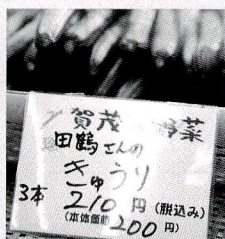 賀茂 野菜
田鶴さんの
きゅうり
3本 210円(税込み)
(本体価格200円)